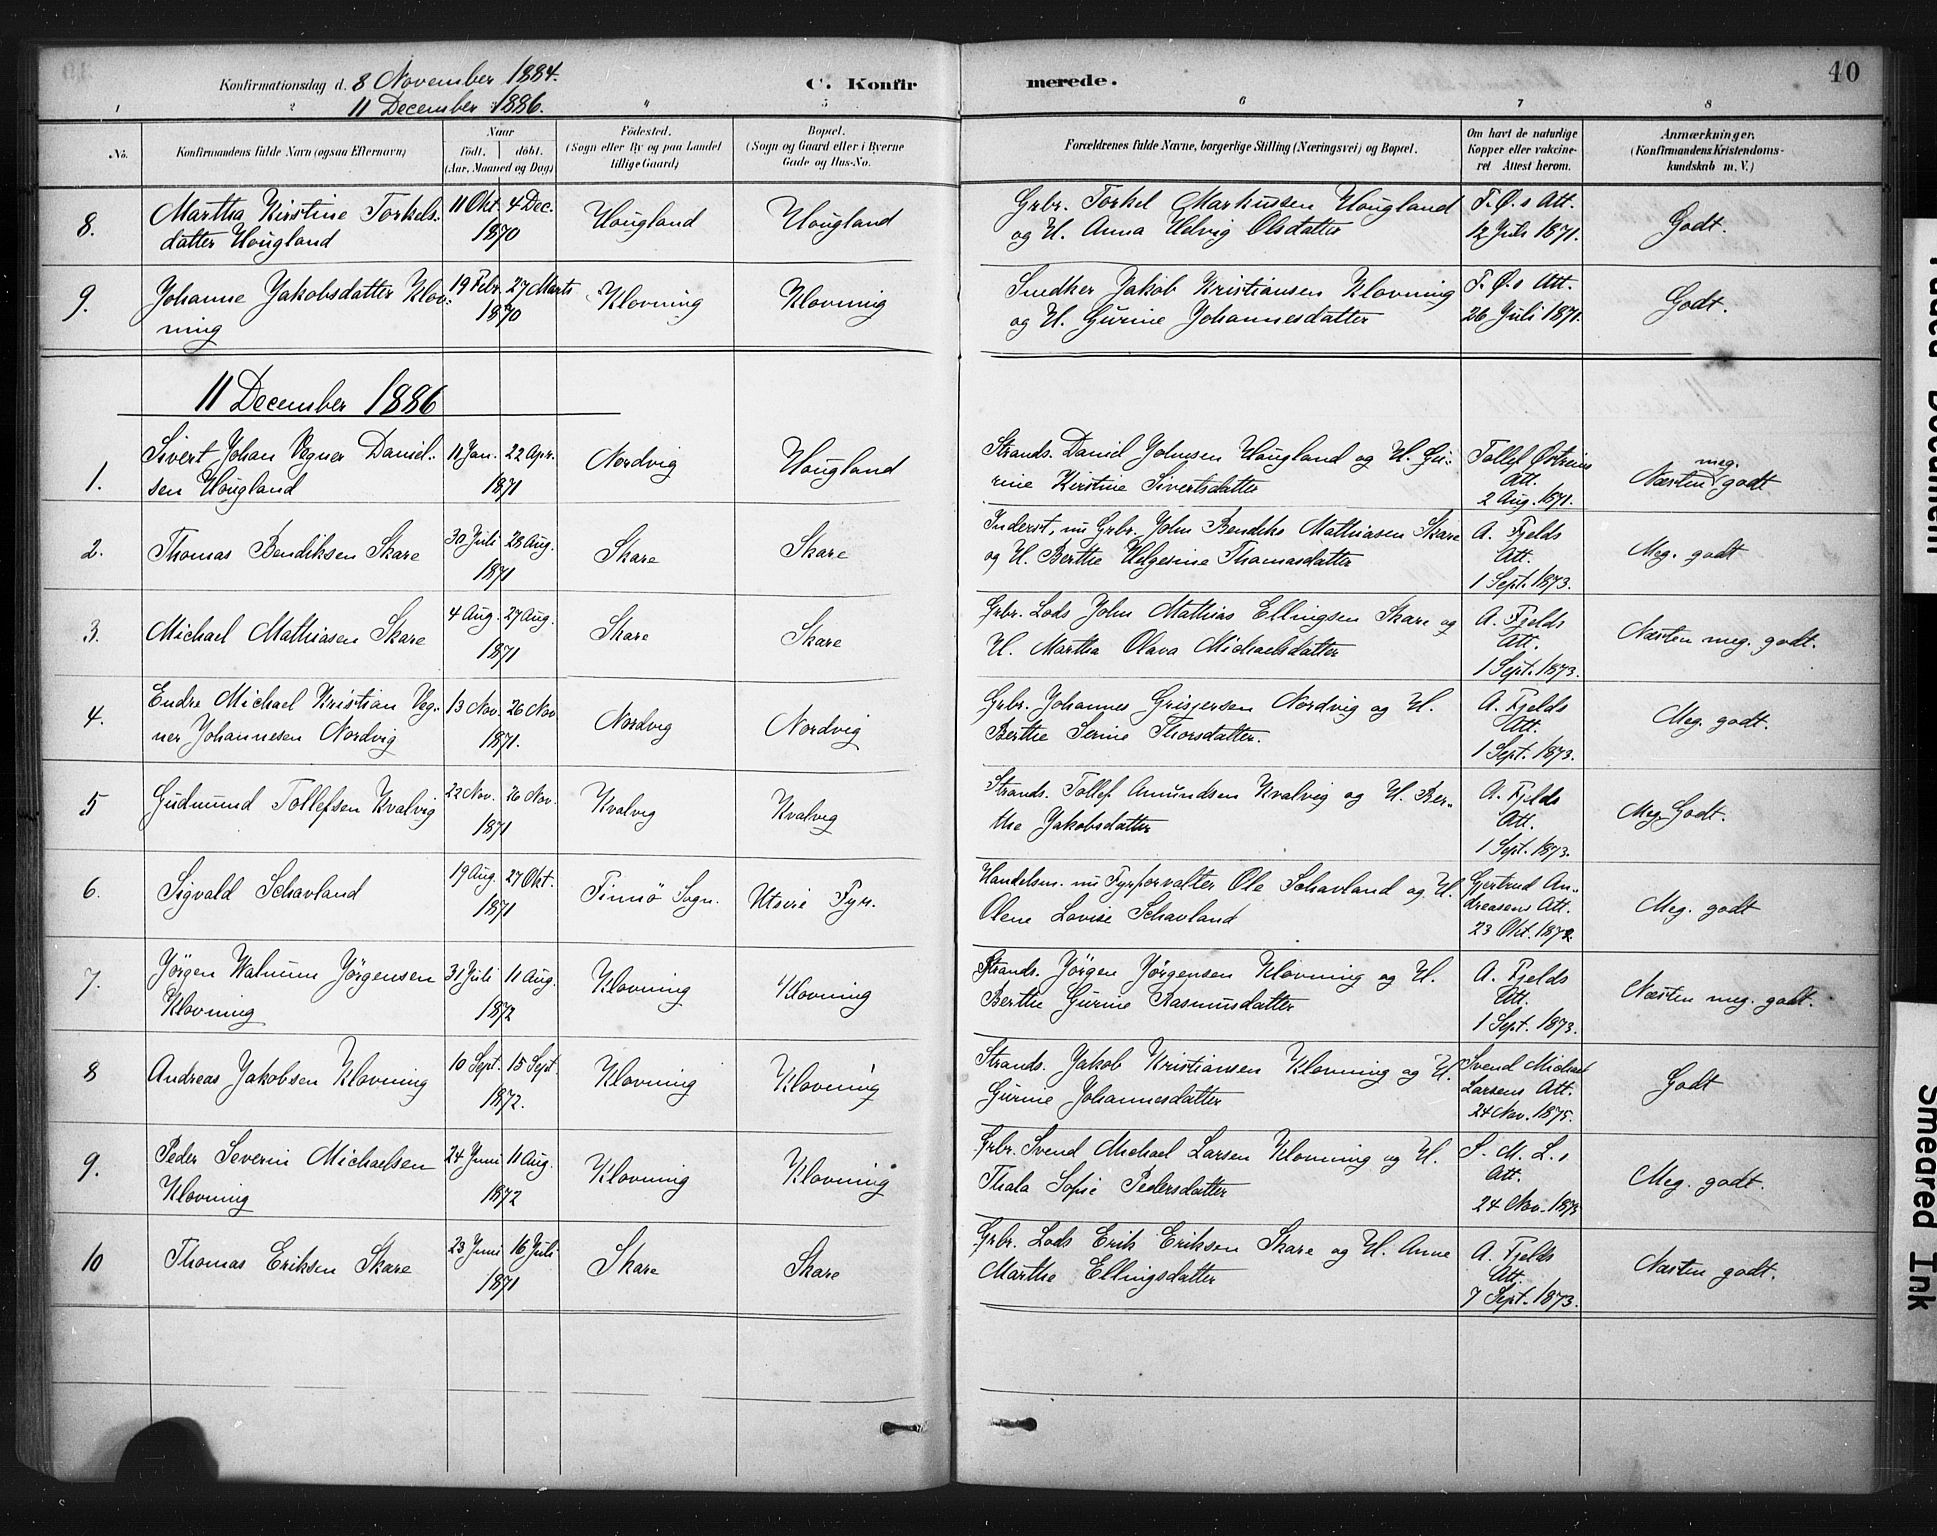 Konfirmationsdag d. 8 November 1884.
11 December 1886.
C. Konfirmerede.
40
1 2 " 5 6 7 8
No.
Konfirmandens fulde Navn (ogsaa Efternavn)
Naar
født, døbt.
(Aar, Maaned og Dag)
Fødested.
(Sogn eller By og paa Landet tillige Gaard)
Bopæl.
(Sogn og Gaard eller i Byerne Gade og Hus-No.
Forældrenes fulde Navne, borgerlige Stilling (Næringsvei) og Bopæl.
Om havt de naturlige Kopper eller vakcineret Attest herom.
Anmærkninger.
(Konfirmandens Kristendomskundskab m. V.)
8. Martha Kirstine Torkels- 11 Okt. 4 Dec. Hougland Hougland Grbr. Torkel Markussen Hougland T. Ø.s Att. Godt.
datter Hougland 1870 og H. Anna Helvig Olsdatter 12 Juli 1871.
9. Johanne Jakobsdatter Klov- 19 Febr. 27 Marts Klovning Klovning Snedker Jakob Kristiansen Klovning T. Ø.s Att. Godt.
ning 1870 og H. Gurine Johannesdatter 26 Juli 1871.
11 December 1886
1. Sivert Johan Vegner Daniel- 11 Jan. 22 Apr. Nordvig Hougland Strands. Daniel Johnsen Hougland og H. Gu- Tollef Østreims Næsten meg. godt
sen Hougland 1871 rine Kirstine Sivertsdatter Att. 2 Aug. 1871.
2. Thomas Bendiksen Skare 30 Juli 28 Aug. Skare Skare Inderst, nu Grbr. John Bendiks Mathiasen Skare A. Fjelds Meg. godt
1871 og H. Berthe Helgesine Thomasdatter Att. 1 Sept. 1873.
3. Michael Mathiasen Skare 4 Aug. 27 Aug. Skare Skare Grbr. Lods John Mathias Ellingsen Skare og A. Fjelds Næsten meg. godt.
1871 H. Martha Olava Michaelsdatter Att. 1 Sept. 1873.
4. Endre Michael Kristian Veg- 13 Nov. 26 Nov Nordvig Nordvig Grbr. Johannes Grisjersen Nordvig og H. A. Fjelds Meg. godt.
ner Johannesen Nordvig 1871. Berthe Serine Thorsdatter. Att. 1 Sept. 1873.
5 Gudmund Tollefsen Kvalvig 22 Nov. 26 Nov. Kvalvig Kvalvig Strands. Tollef Amundsen Kvalvig og H. Ber- A. Fjelds Meg. Godt.
1871 the Jakobsdatter Att. 1 Sept. 1873.
6. Sigvald Schavland 19 Aug. 27 Okt. Finnø Sogn. Utsire Fyr. Handelsm. nu Fyrforvalter Ole Schavland og H. Gjertrud An- Meg. godt
1871 Olene Lovise Schavland dreasens Att. 23 Okt. 1872.
7. Jørgen Walnum Jørgensen 31 Juli 11 Aug. Klovning Klovning Strands. Jørgen Jørgensen Klovning og H. A. Fjelds Næsten meg. godt.
Klovning 1872 Berthe Gurine Rasmusdatter Att. 1 Sept. 1873.
8 Andreas Jakobsen Klovning 10 Sept. 15 Sept Klovning Klovning Strands. Jakob Kristiansen Klovning og H. Svend Michael Godt
1872. Gurine Johannesdatter Larsens Att. 24 Nov. 1875.
9. Peder Severin Michaelsen 24 Juni 11 Aug. Klovning Klovning Grbr. Svend Michael Larsen Klovning og H. S. M. L.s Meg. godt.
Klovning 1872 Thala Sofie Pedersdatter Att. 24 Nov.
10 Thomas Eriksen Skare 23 Juni 16 Juli Skare Skare Grbr. Lods Erik Eriksen Skare og H. Anne A. Fjelds Næsten godt.
1871 Marthe Ellingsdatter Att. 7 Sept. 1873.
Faded Document
Smeared Ink